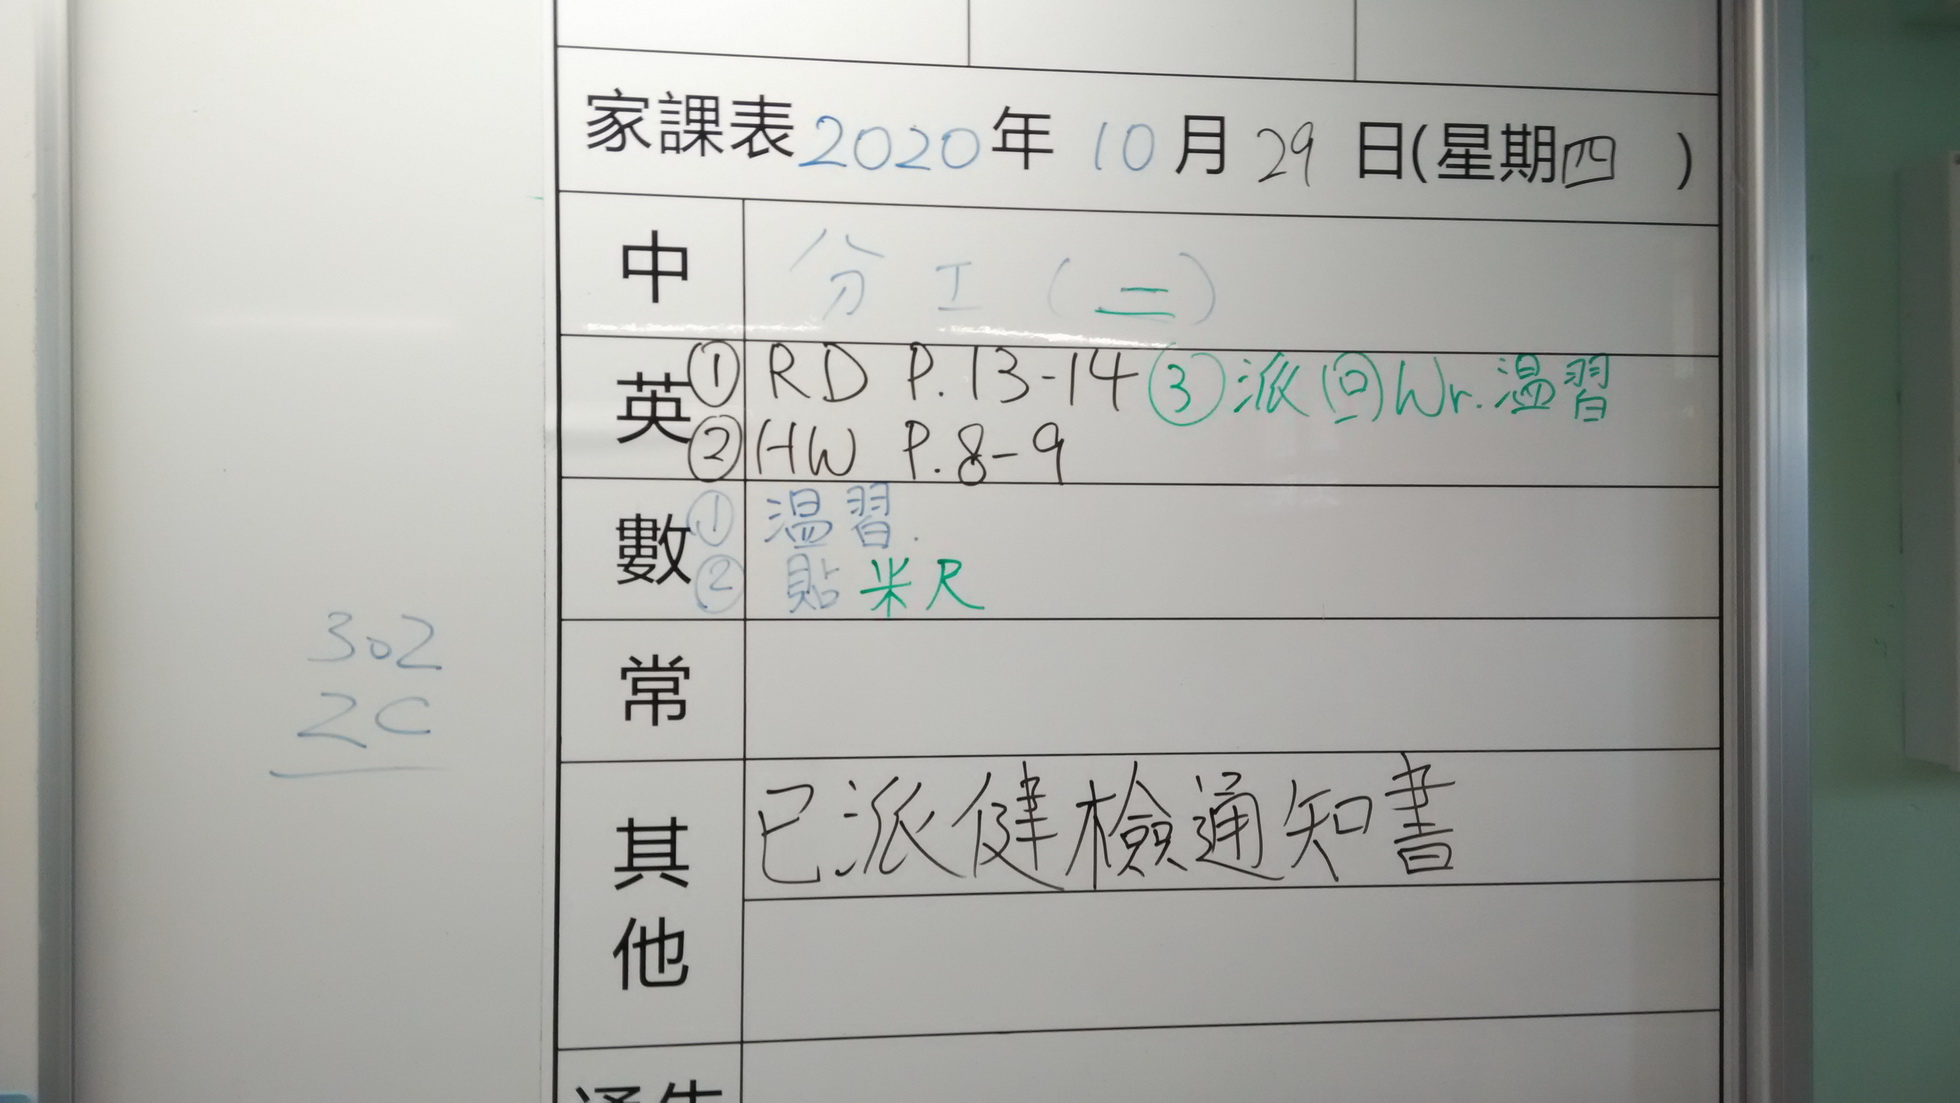 家課表 2020 年 10 月 29 日(星期四 )
中 分工(二)
英 ① RD P.13-14 ③ 派回Wr.溫習
② HW P.8-9
數 ① 溫習.
② 貼米尺
302
2C
常
其他 已派健檢通知書
通告